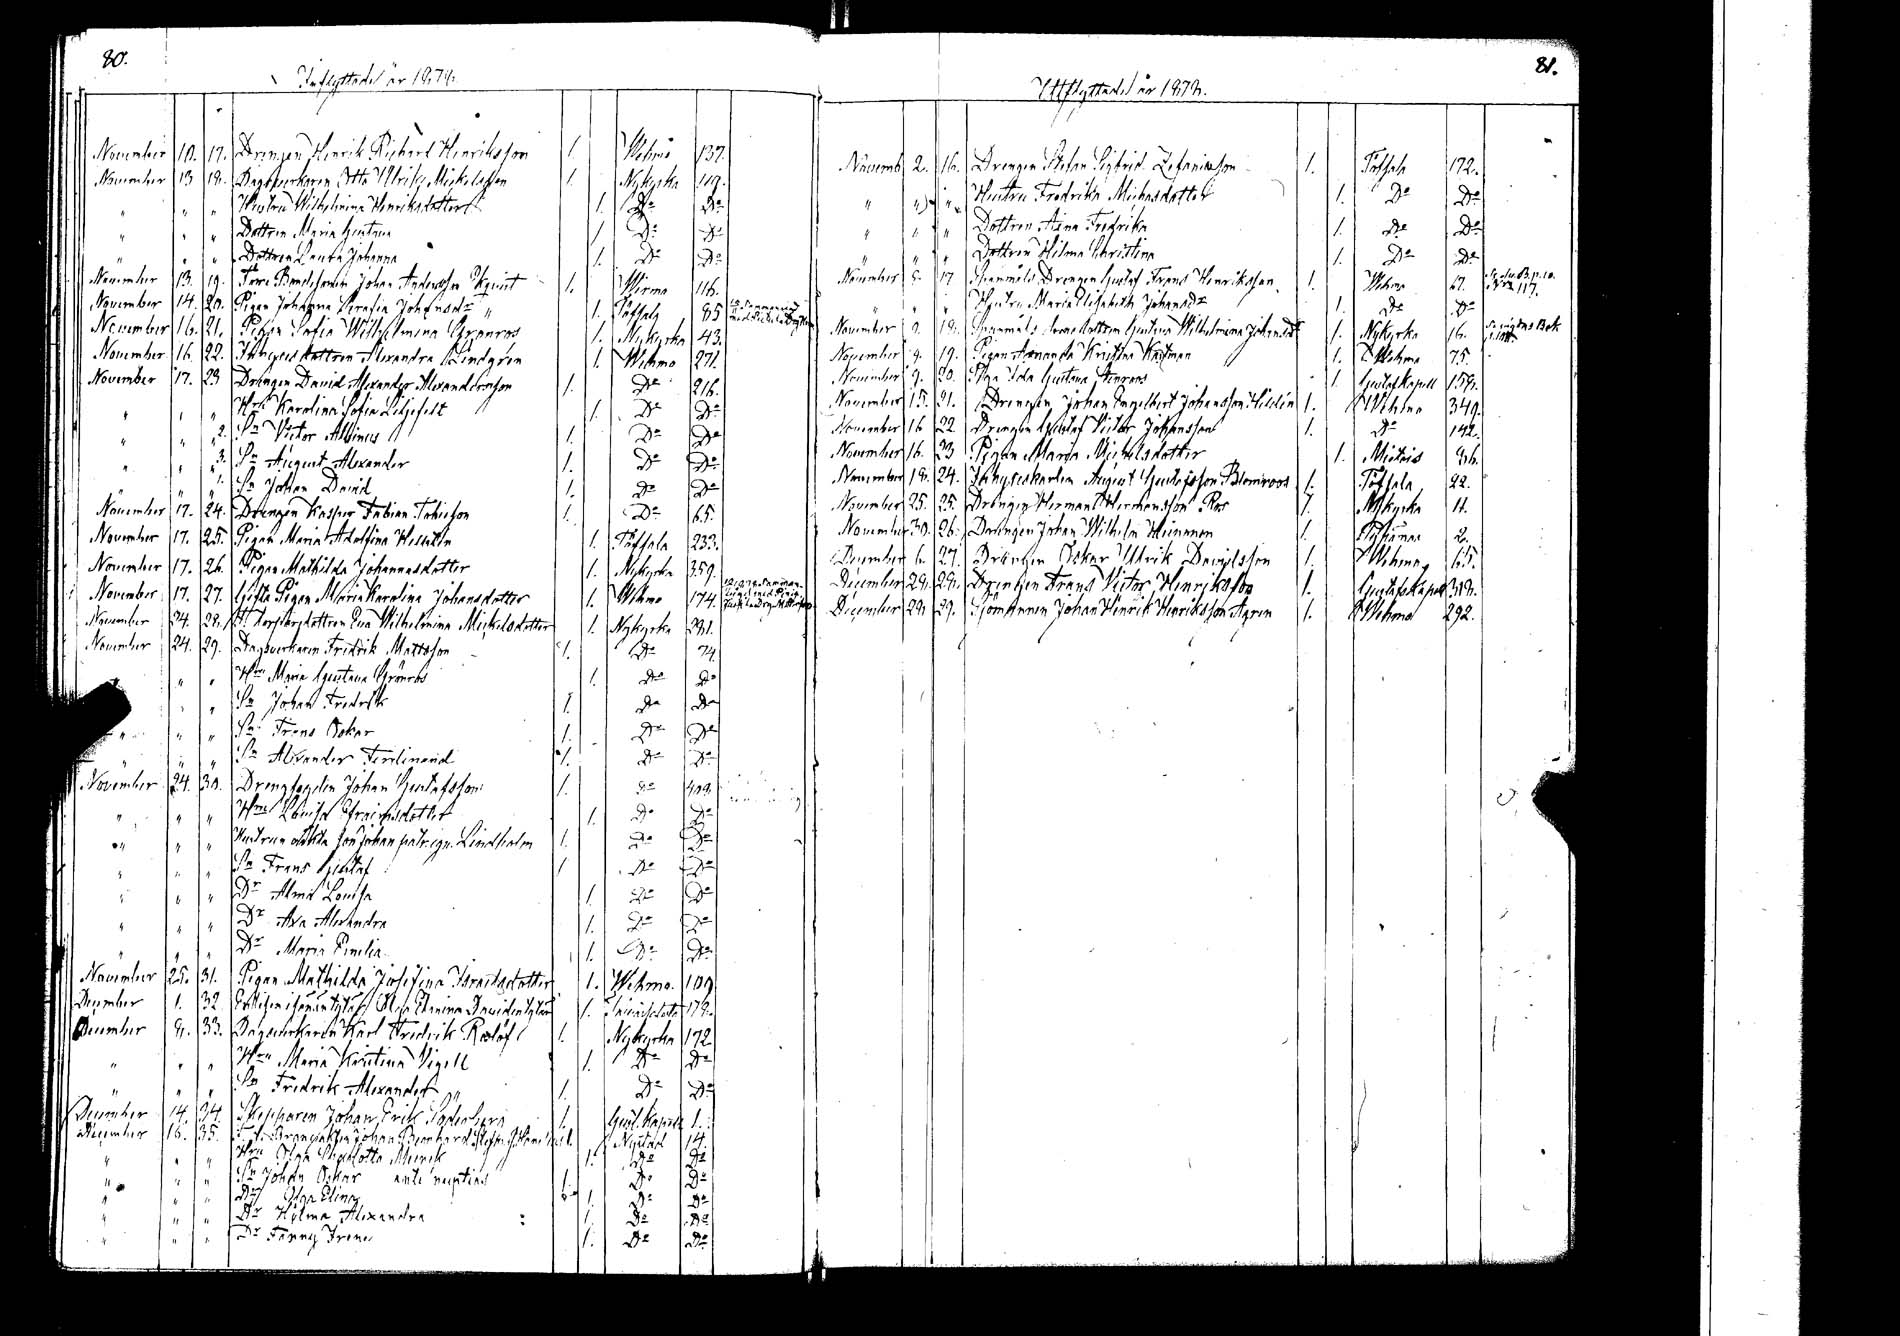 80.
Inflyttade år 1878.
November 10. 17. Drengen Henrik Richard Henriksson 1. Wehmo 137.
November 13 18. Dagsverkaren Otto Ulrik Mickelsson 1. Nykyrka 119.
" " " Hustru Wilhelmina Henriksdotter 1. Do Do
" " " Dottren Maria Gustava 1. Do Do
" " " Dottren Laura Johanna 1. Do Do
November 13. 19. Bondesonen Johan Andersson Qvist 1. Wirmo 116.
November 14. 20. Pigan Johanna Serafia Johansdr 1. Töfsala 85
November 16. 21. Pigan Sofia Wilhelmina Grönroos 1. Nykyrka 43.
November 16. 22. Inhysesdottren Alexandra Lindgren 1. Wehmo 271.
November 17. 23 Drengen David Alexander Alexandersson 1. Do 216.
" " " Hru Karolina Sofia Liljefelt 1. Do Do
" " " 2. Sn Victor Albinus 1. Do Do
" " " 3. Sn August Alexander 1. Do Do
" " " 1. Sn Johan David 1. Do Do
November 17. 24. Drengen Kasper Fabian Fabiesson 1. Do 65.
November 17. 25. Pigan Maria Adolfina 1. Töfsala 233.
November 17. 26. Pigan Mathilda Johannasdotter 1. Nykyrka 359.
November 17. 27. Pigan Maria Karolina Johansdotter 1. Wehmo 174.
November 24. 28. Torpardottren Eva Wilhelmina Mickelsdotter 1. Nykyrka 231.
November 24. 29. Dagsverkaren Fredrik Mattsson 1. Do 74.
" " Hru Maria Gustava Grönroos 1. Do Do
" " Sn Johan Fredrik 1. Do Do
" " " Sn Frans Oskar 1. Do Do
" " " Sn Alexander Ferdinand 1. Do Do
November 24. 30. Drengfogden Johan Gustafsson 1. Do 409.
" " " Hru Lovisa Efraimsdotter 1. Do Do
" " " Hustrun oäkta son Johan Lindholm 1. Do Do
" " " Sn Frans Gustaf 1. Do Do
" " " Dr Alma Lovisa 1. Do Do
" " " Dr Ava Alexandra 1. Do Do
" " " Dr Maria Emilia 1. Do Do
November 25. 31. Pigan Mathilda Josefina Israelsdotter 1. Wehmo. 109
December 1. 32 Olga Davidintytär 1. 178.
December 8. 33. Dagsverkaren Karl Fredrik Roslöf 1. Nykyrka 172
" " " Hru Maria Kristina Vigell 1. Do Do
" " " Sn Fredrik Alexander 1. Do Do
December 14. 34. Skepparen Johan Erik Söderberg 1. Gust. Kapell 1.
December 16. 35. Johan Bernhard 1. Nystad 14.
" " " Hru Olga Charlotta Meurik 1. Do Do
" " " Sn Johan Oskar ante nuptias 1. Do Do
" " " Dr Olga Elina 1. Do Do
" " " Dr Hilma Alexandra 1. Do Do
" " " Dr Fanny Irene 1. Do Do
81.
Utflyttade år 1878.
Novemb 2. 16. Drengen Stefan Sigfrid Zefaniasson 1. Töfsala 172.
" " " Hustru Fredrika Michasdotter 1. Do Do
" " " Dottren Aina Fredrika 1. Do Do
" " " Dottren Hilma Christina 1. Do Do
November 8 17 Drengen Gustaf Frans Henriksson 1. Wehmo 67.
" " " Hustru Maria Elisabeth Johansdr 1. Do Do
November 9. 18. Gustava Wilhelmina Johansdr 1. Nykyrka 16.
November 9. 19. Pigan Amanda Kristina 1. Wehmo 75.
November 9. 20. Piga Ida Gustava 1. Gustaf Kapell 158.
November 15. 21. Drengen Johan Engelbert Johansson Hildén 1. Wehmo 349.
November 16 22 Drengen Gustaf Victor Johansson 1. Do 142.
November 16. 23 Pigan Maria Mickelsdotter 1. Mietois 86.
November 18. 24. Inhyseskarlen August Gustafsson Blomroos 1. Töfsala 22.
November 25. 25. Drengen Herman Hermansson Ros 1. Nykyrka 11.
November 30. 26. Drengen Johan Wilhelm Heinonen 1. 2.
December 6. 27. Drängen Oskar Ulrik Davidsson 1. Wehmo 65.
December 28. 28. Drengen Frans Victor Henriksson 1. Gustafs Kapell 318.
December 28. 29. Sjömannen Johan Henrik Henriksson Agren 1. Wehmo 292.